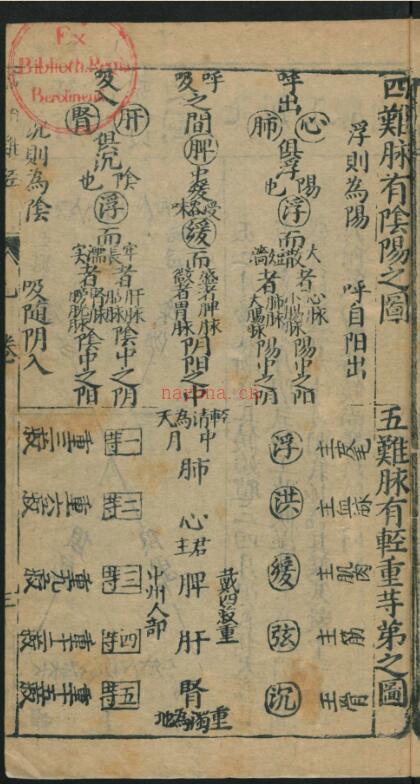 四難脉有陰陽之圖
浮則為陽
呼自阳出
呼出
心
肺
俱浮
陽也
浮
而
大散者
心脉
小腸脉
陽中之阳
短濇者
肺脉
大腸脉
陽中之阴
呼
吸之間
脾
受穀味
緩
而
盛者脾脉
微者胃脉
阴阳之中
吸入
肝
腎
俱沉
陰也
而
牢長者
肝脉
陰中之阳
濡實者
腎脉
陰中之阴
沉則為陰
吸随阴入
五難脉有輕重等第之圖
浮
主皮毛
洪
主血脉
緩
主肌肉
弦
主筋
沉
主骨
輕清為天
肺
心
君主
脾
肝
腎
重濁為地
中州人部
一等
重三菽
二等
重六菽
三等
重九菽
四等
重十二菽
五等
重十五菽
Ex
Biblioth. Regia
Berolinen
naxona.cn